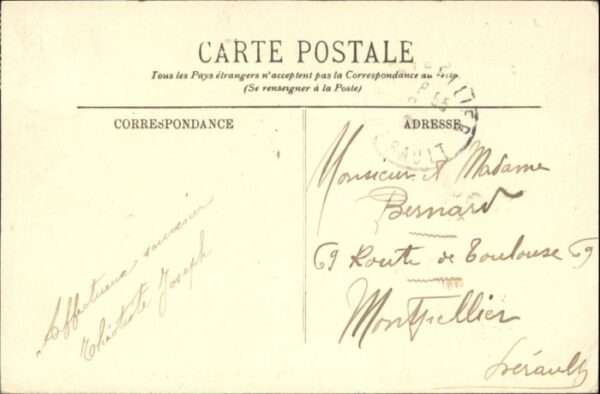 CARTE POSTALE
Tous les Pays étrangers n'acceptent pas la Correspondance au
(Se renseigner à la Poste)
CORRESPONDANCE
ADRESSE
RAULT
Affectueux souvenir
Joseph
Monsieur et Madame
Bernard
69 Route de Toulouse 69
Montpellier
Hérault